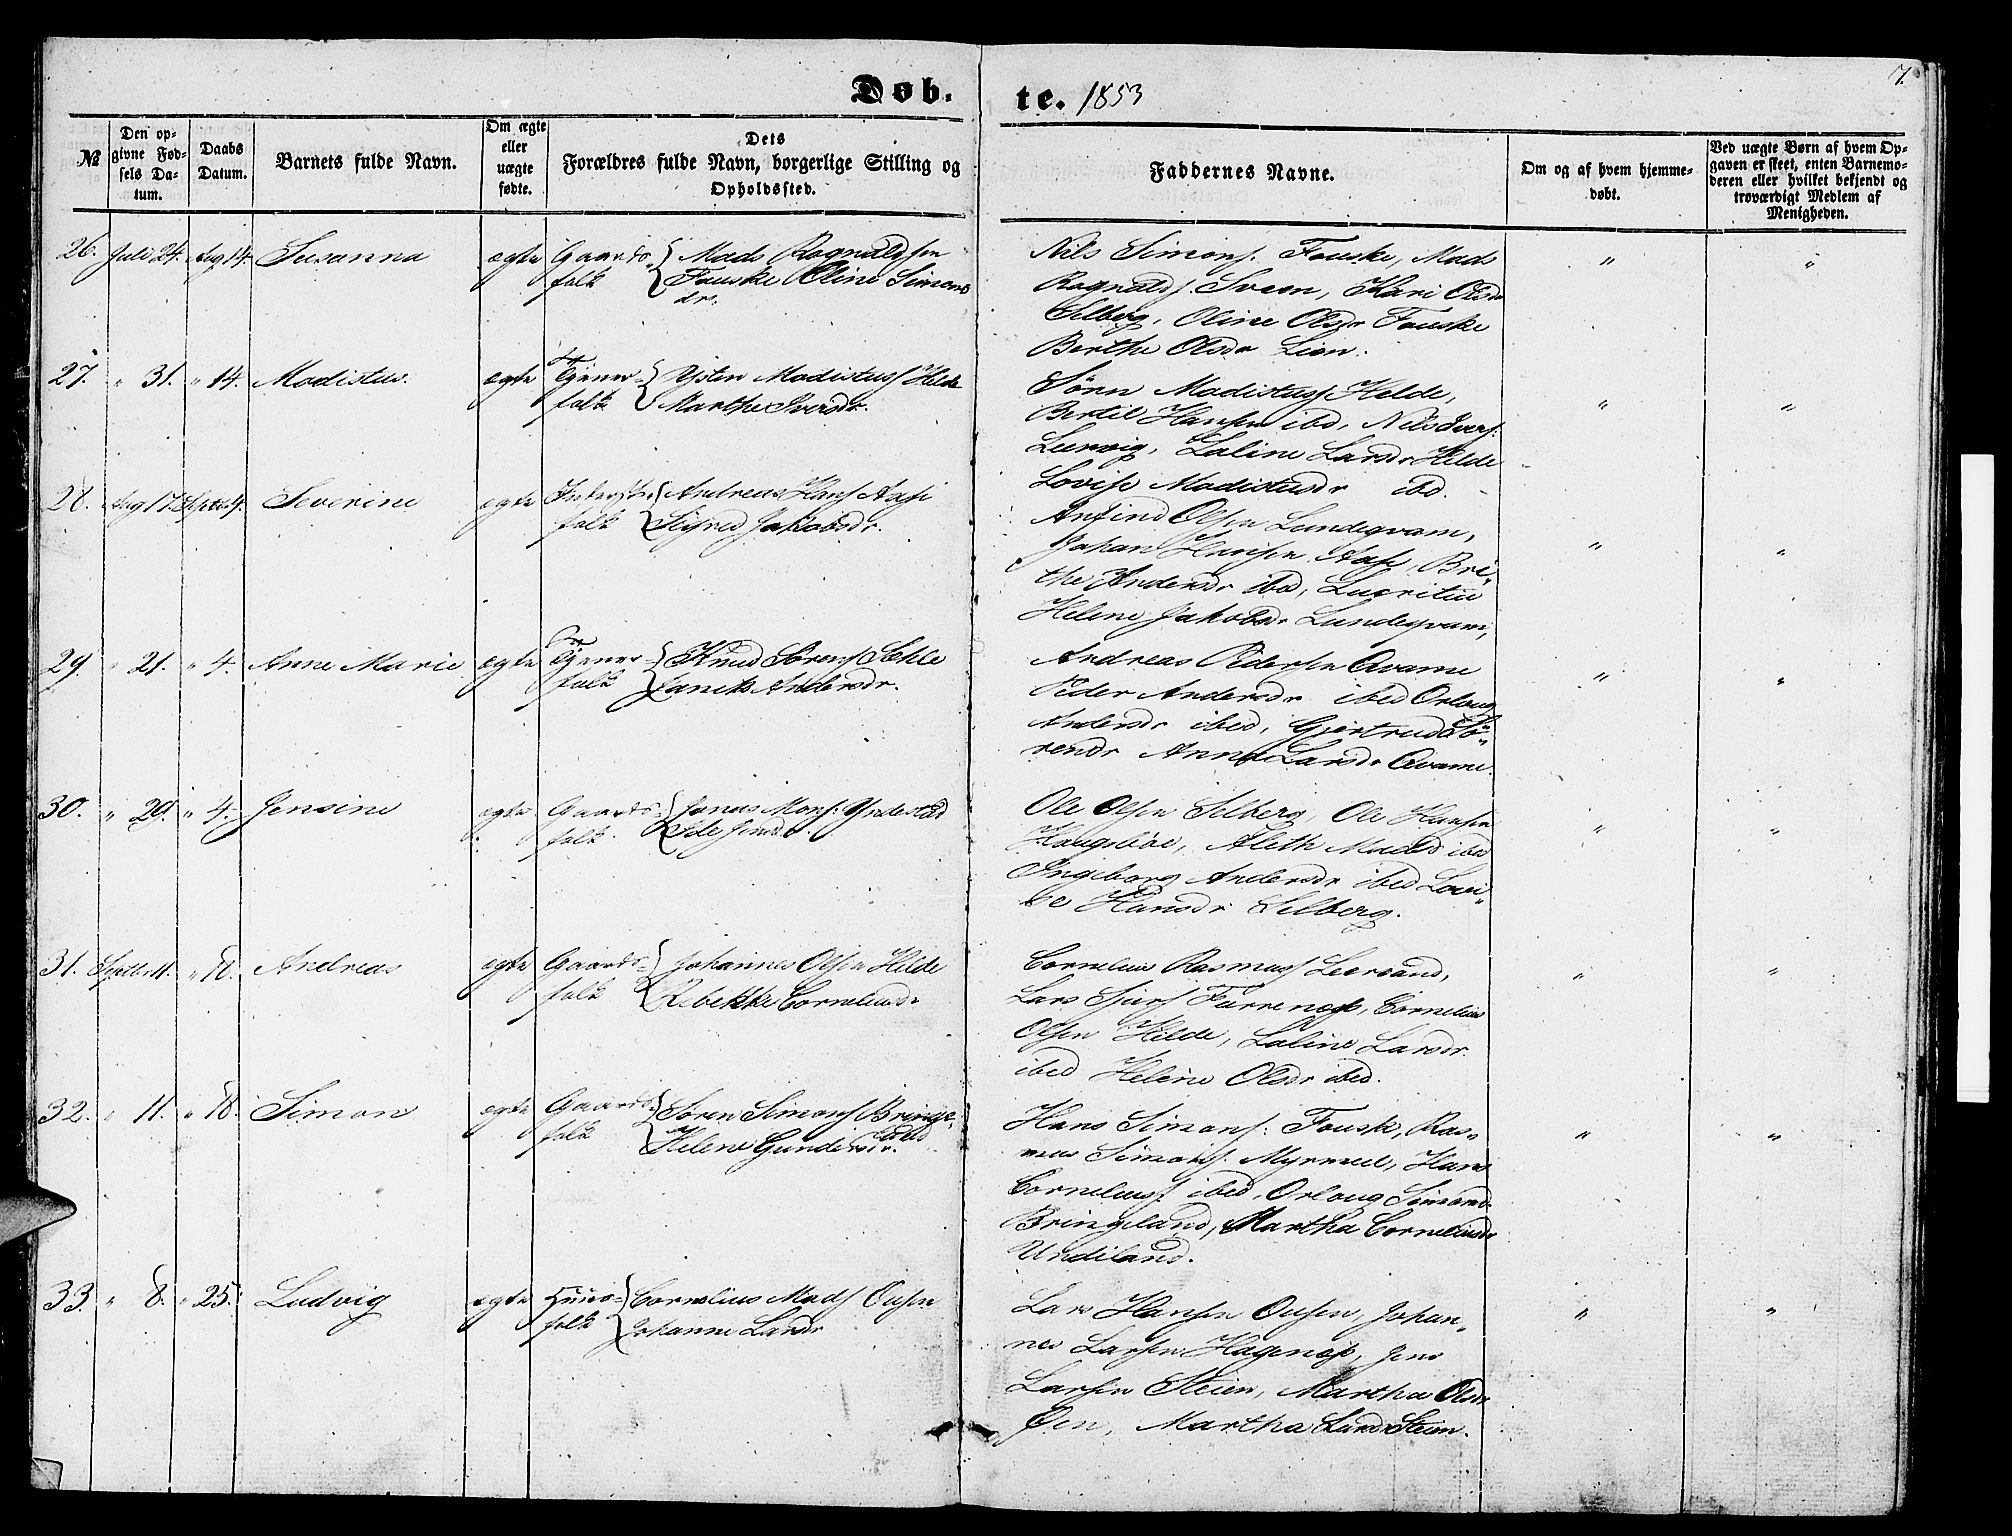 7.
Døb-
te. 1853
№
Den op-
givne Fød-
sels Da-
tum.
Daabs
Datum.
Barnets fulde Navn.
Om ægte
eller
uægte
fødte.
Dets
Forældres fulde Navn, borgerlige Stilling og
Opholdssted.
Faddernes Navne.
Om og af hvem hjemme-
døbt.
Ved uægte Børn af hvem Op-
gaven er skeet, enten Barnemo-
deren eller hvilket bekjendt og
troværdigt Medlem af
Menigheden.
26. Juli 24. Aug 14. Susanna ægte Gaards- Mads Ragnalds
folk Fauske Oline Simons
dr.
Nils Simons. Fauske, Mads " "
Ragnalds. Kari Olsdr
Selberg, Oline Olsdr Fauske
Berthe Olsdr Lien.
27. " 31. " 14. Modistus. ægte Tjener- Modistus Hilde
folk Marthe Iversdr.
Sörn Modistus Helde, " "
Bertil Hansen ibd, Nils Ivers.
Lervig, Laline Larsdr Hilde
Lovise Modistusdr ibd.
28. Aug 17. Septr 4. Severine ægte folk Andreas Hans Aase
Sigred Jakobsdr.
Anfind Olsen Lundeqvam, " "
Johan Hansen Aase, Bri-
the Andersdr ibd, Lucritie
Helene Jakobsdr Lundeqvam,
29. " 21. " 4. Anne Marie ægte Tjener- Knud Sörens Sehle
folk Andersdr.
Andreas Pedersen Qvame " "
Peder Andersdr ibid Orloug
Andersdr ibid, Gjertrud Sö-
rensdr Anna Larsdr Qvame.
30. " 29. " 4. Jensine ægte Gaards- Jonas Mons. Yndestad
folk.
Ole Olsen Selberg, Ole Hansen " "
Haugsböe, Aleth Madsd ibd
Ingeborg Andersdr ibid Lovi-
se Hansdr Selberg.
31. Septbr 11. " 18. Andreas ægte Gaards- Johannes Olsen Hilde
folk Rebekke Corneliusdr
Cornelius Rasmus Leersand, " "
Lars Sjurs Furrenæs, Cornelius
Olsen Hilde, Laline Larsdr
ibid Helene Olsdr ibid.
32. " 11. " 18. Simon ægte Gaards- Sören Simons Bringe-
land
folk Helene Gundersdr.
Hans Simons. Fauske, Ras- " "
mus Simons. Myrmel, Hans
Cornelius. ibid, Orloug Simonsd.
Bringeland, Martha Corneliusdr
Undiland.
33. " 8. " 25. Ludvig ægte Huus- Cornelius Mads Ousen
folk Johanne Larsdr
Lars Hansen Ousen, Johan- " "
nes Larsen Hagenæs, Jens
Larsen Steien, Martha Olsdr
Öen, Martha Larsdr Steien.